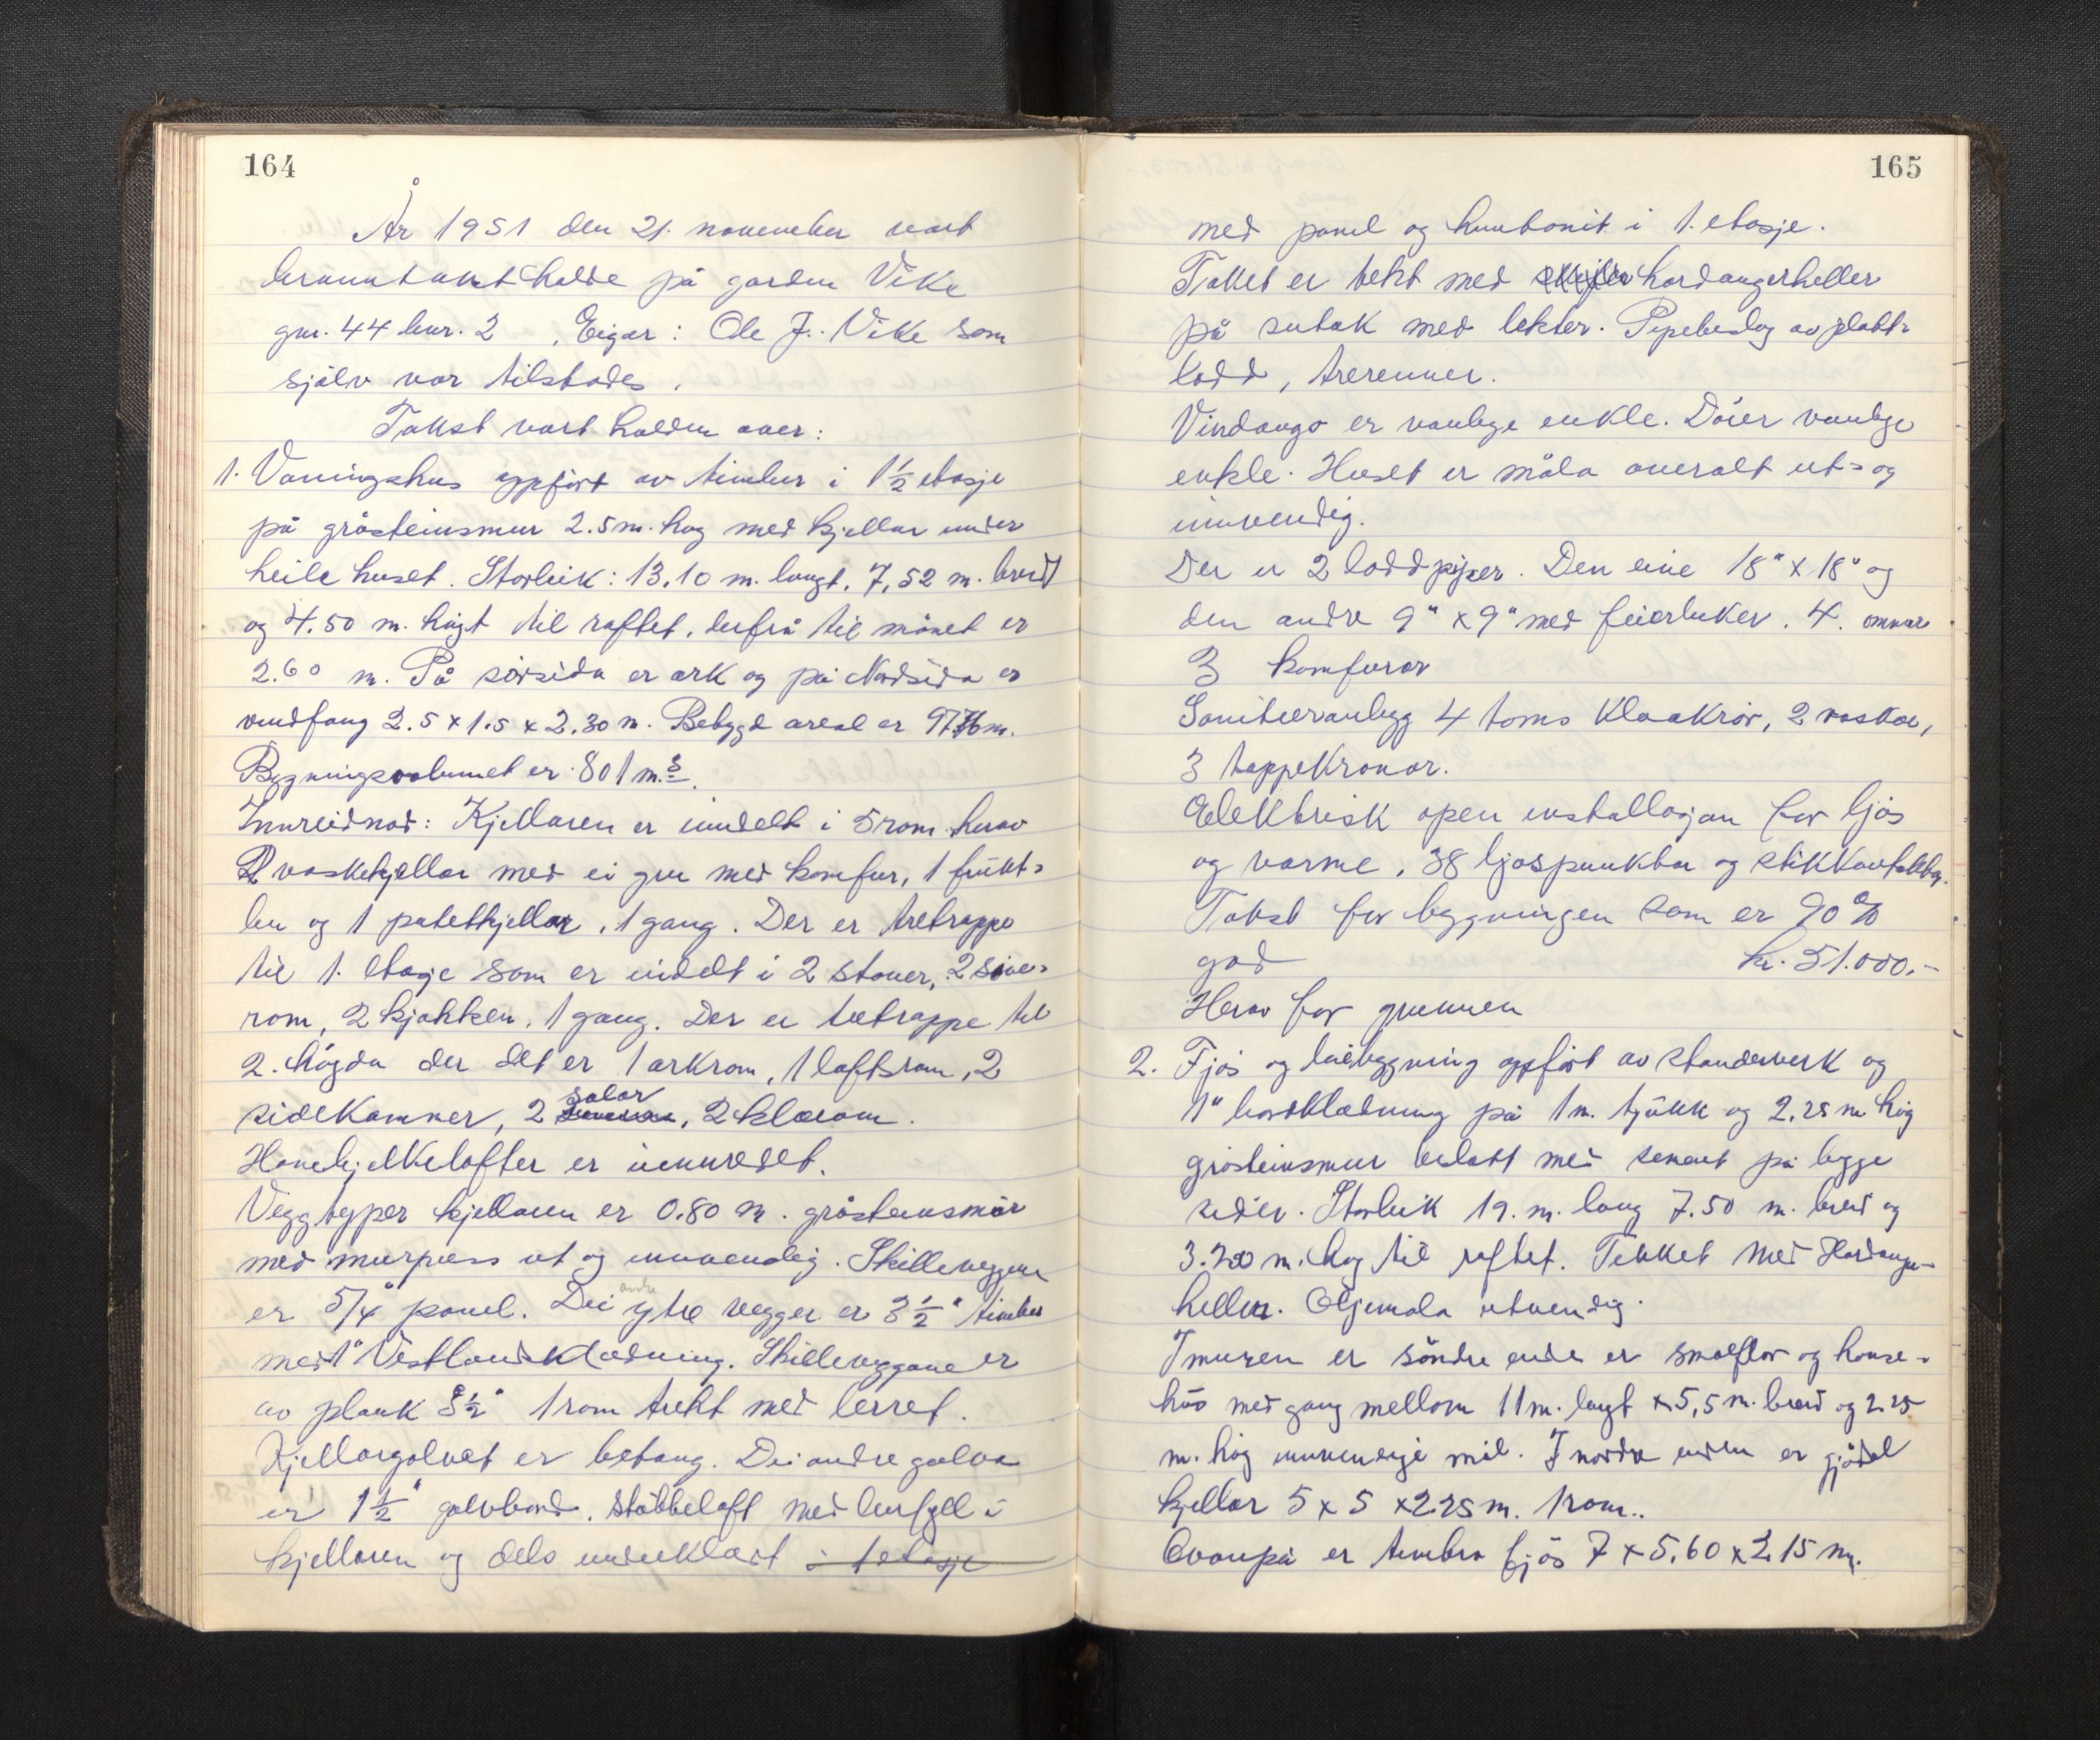 164
År 1951 den 21. november vart
branntakst halde på garden Vike
gnr. 44 bnr. 2 , Eigar: Ole J. Vike som
sjølv var tilstades.
Takst vart halden over:
1. Våningshus oppført av timber i 1½ etasje
på gråsteinsmur 2.5 m. høg med kjellar under
heile huset. Storleik: 13.10 m. langt. 7,52 m. breidt
og 4.50 m. høgt til raftet, derfrå til mönet er
2.60 m. På sørsida er ark og på Nordsida er
vindfang 2.5 x 1.5 x 2.30 m. Bebygd areal er m.
Bygningsvolumet er 801 m.³.
Innreidnad: Kjellaren er inndelt i 5 rom herav
vaskekjellar med ei gru med komfur, 1 frukt-
bu og 1 potetkjellar, 1 gang. Der er tretrappe
til 1. etasje som er indelt i 2 stover, 2 sove-
rom, 2 kjøkken, 1 gang. Der er tretrappe til
2. høgda der det er 1 arkrom, 1 loftsrom, 2
sidekammer, 2 salar, 2 klærom.
Hanebjelkelofter er uinnredet.
Veggtyper kjellaren er 0.80 m. gråsteinsmur
med murpuss ut og innvendig. Skilleveggene
er 5/4" panel. Dei andre ytre vegger er 3½" timber
med 1" Vestlandsklædning. Skilleveggane er
av plank 3½" 1 rom trekt med lerret.
Kjellargolvet er betong. Dei andre golva
er 1½" golvbord. Støbbeloft med leirfyll i
kjellaren og dels underklædt i 1 etasje
165
med panel og huntonit i 1. etasje.
Taket er tekt med hardangerheller
på sutak med lekter. Pipebeslag av plott-
lodd, trerenner.
Vindaugo er vanlege enkle. Dører vanlege
enkle. Huset er måla overalt ut- og
innvendig.
Der er 2 loddpiper. Den eine 18" x 18" og
den andre 9" x 9" med feierluker. 4. omnar
3 komfurar
Sanitæranlegg 4 toms kloakrør, 2 vaskar,
3 tappekranar.
Elektrisk open installasjon for ljos
og varme, 38 ljospunktar og stikkontaktar.
Takst for bygningen som er 90 %
god kr. 51.000.-
Herav for grunnen
2. Fjøs og løebygning oppført av standerverk og
1" bordklædning på 1 m. tjukk og 2.25 m høg
gråsteinsmur beslått med sement på begge
sider. Storleik 19. m. lang 7.50 m. breid og
3.200 m. høg til raftet. Tekket med Hardanger-
heller. Oljemåla utvendig.
I muren er söndre ende er smalflor og hønse-
hus med gang mellom 11 m. langt x 5,5 m. breid og 2.25
m. høg innvendige mål. I nordre enden er gjødsel
kjellar 5 x 5 x 2.25 m. 1 rom..
Ovanpå er timbra fjøs 7 x 5.60 x 2.15 m.